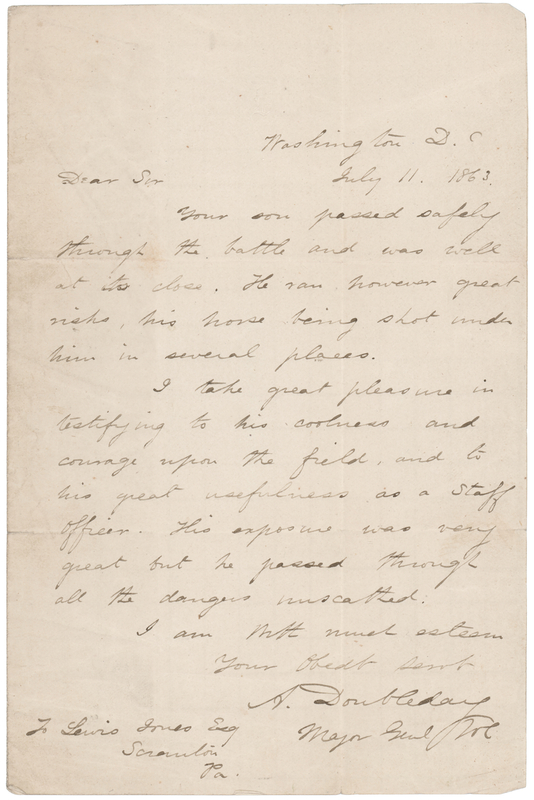 Washington D. C.
Dear Sir July 11. 1863.
Your son passed safely
through the battle and was well
at its close. He ran, however great
risks, his horse being shot under
him in several places.
I take great pleasure in
testifying to his coolness and
courage upon the field, and to
his great usefulness as a Staff
Officer. His exposure was very
great but he passed through
all the dangers unscathed.
I am With much esteem
Your Obedt servt
A. Doubleday
Major Genl Vol
To Lewis Jones Esq
Scranton
Pa.